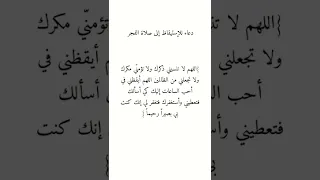 دعاء للإستيقاظ إلى صلاة الفجر
}اللهم لا تنسيني ذكرك ولا تؤمنّي مكرك
ولا تجعلني من الغافلين اللهم أيقظني في
أحب الساعات إليك كي أسألك
فتعطيني وأستغفرك فتغفر لي إنك كنت
بي بصيراً رحيماً {